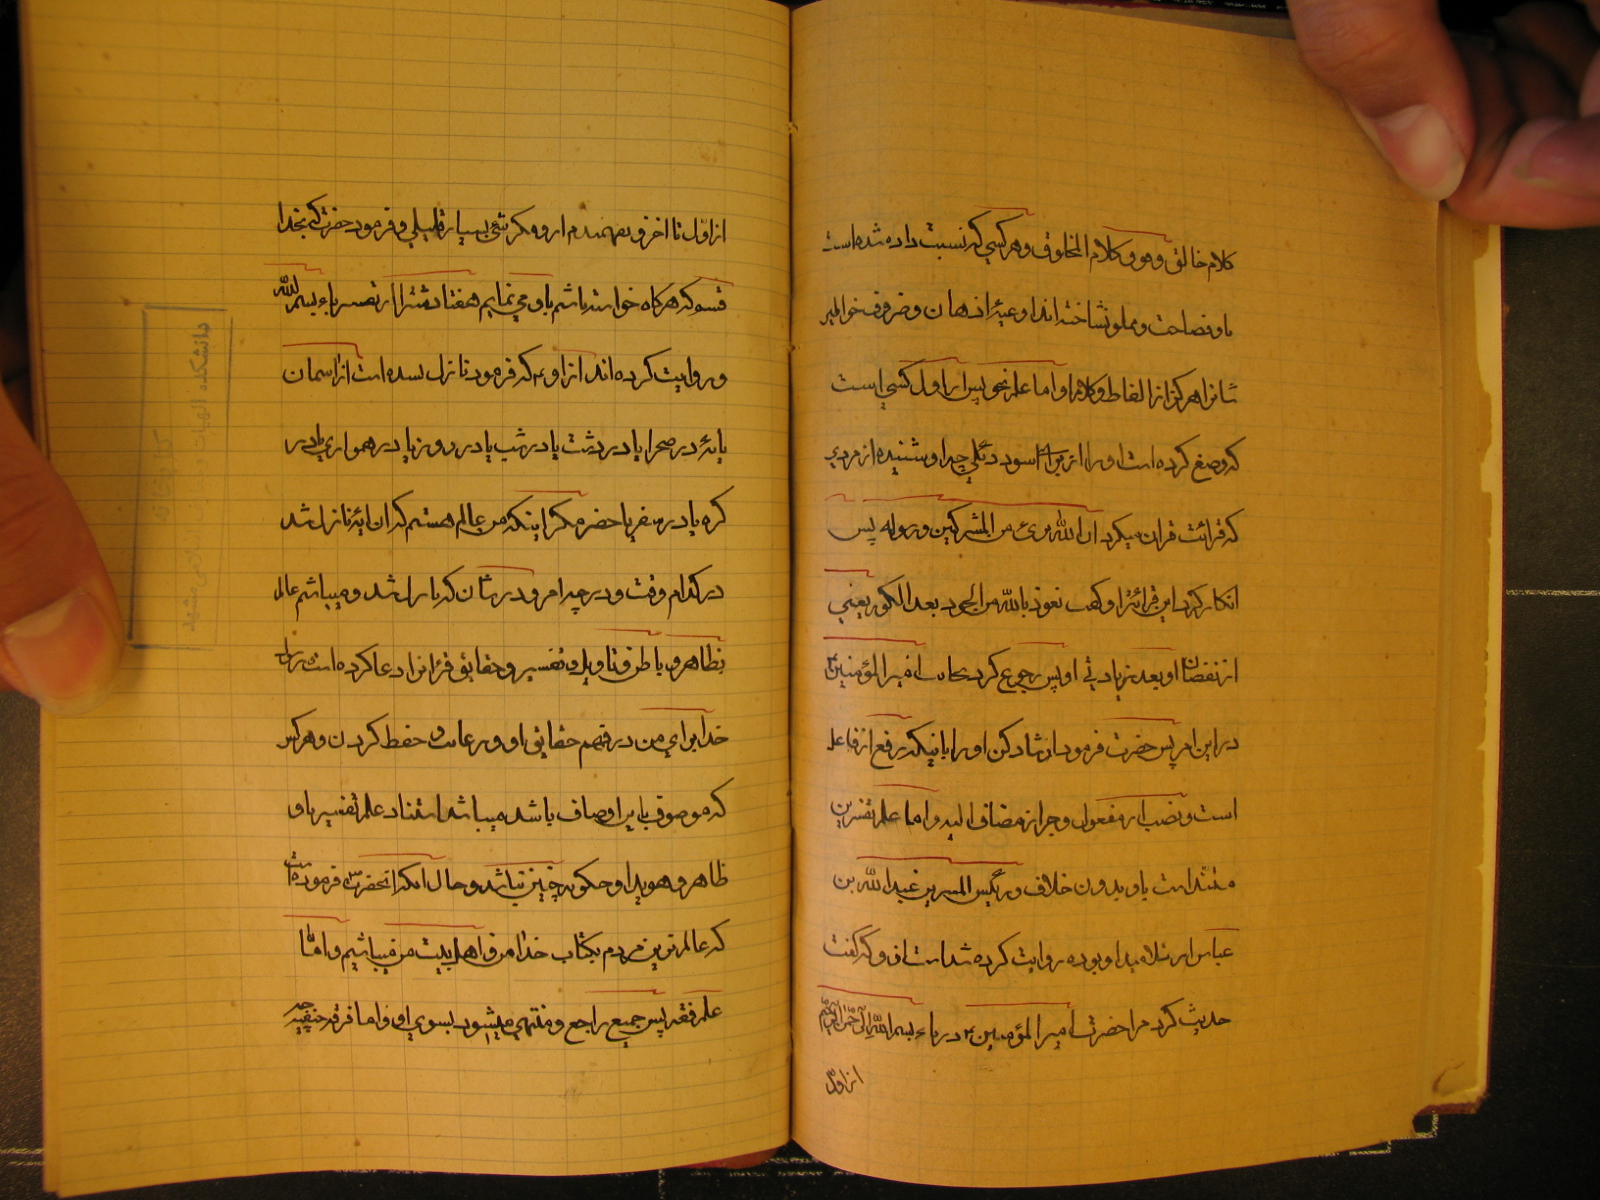 کلام خالق و فوق کلام المخلوق و هر کسی که نسبت داده شده است
باو فصاحت و مملو نشاخته‌اند او غیر از دهان و ضروف خوالیر
شانرا هرکز از الفاظ و کلام او اما علم نحو پس اول کسی است
که وضع کرده است او را ابو الاسود دئلی چه او شنیده از مردی
که قرائت قران میکرد ان الله برئ من المشرکین و رسوله پس
انکار کرد این قرائترا و کفت نعوذ بالله من الحود بعد الکور یعنی
از نقصان او بعد زیادتی او پس رجوع کرد بجانب امیر المؤمنین ع
در این امر پس حضرت فرمود ارشاد کن او را باینکه رفع از فاعل
است و نصب از مفعول و جر از مضاف الیه و اما علم تفسیر این
مستند است باو بدون خلاف و رئیس المفسرین عبد الله بن
عباس از تلامیذ او بوده روایت کرده شده است از او که کفت
حدیث کرد مرا حضرت امیر المؤمنین ع در باء بسم الله الرحمن الرحیم
از اول
از اول تا اخر و نفهمیدم از او مکر شئ بسیار قلیلی و فرمود حضرت که بخدا
قسم که هرکاه خواسته باشم باو می نمایم هفتاد شتر از تفسیر باء بسم الله
و روایت کرده‌اند از او ع که فرمود نازل نشده است از اسمان
ایهٔ در صحرا یا در دشت یا در شب یا در روز یا در همواری یا در
کوه یا در سفر یا حضر مکر اینکه من عالم هستم که ان ایهٔ نازل شد
در کدام وقت و در چه امر و در شان که نازل شد و میباشم عالم
بظاهر و باطن و تاویل و تفسیر و حقایق قرانرا دعا کرده است رسول
خدا برای من در فهم حقایق او و رعایت و حفظ کردن و هر کس
که موصوف باین اوصاف باشد میباشد استناد علم تفسیر باو
ظاهر و هویدا و چکونه چنین نباشد و حال انکه انحضرت ص فرموده است
که عالم ترین مردم بکتاب خدا من و اهل بیت من میباشیم و امّا
علم فقه پس جمیع راجع و منتهی میشود بسوی او و اما فرقه حنفیه
دانشکده الهیات
کتابخانه